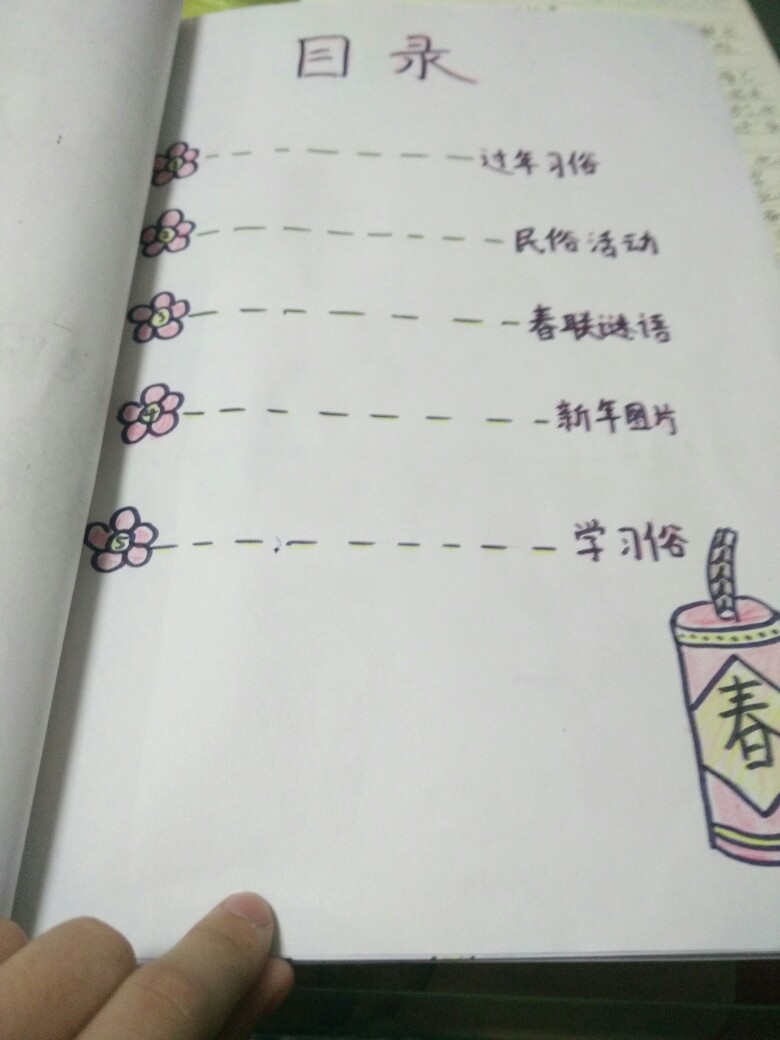 目录
1 过年习俗
2 民俗活动
3 春联谜语
4 新年图片
5 学习俗
春